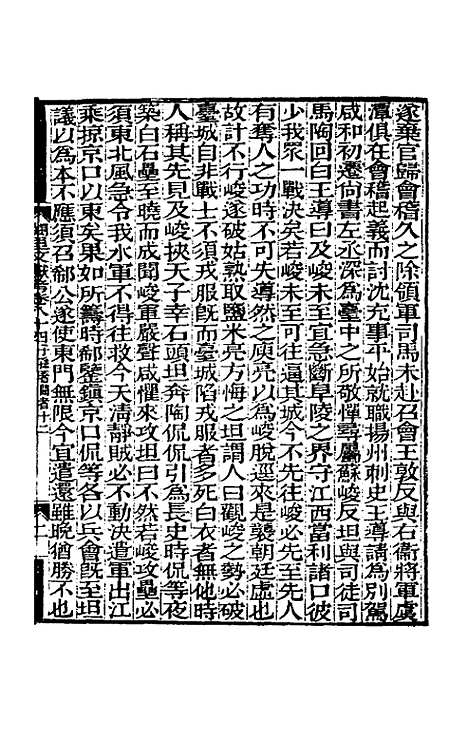 遂棄官歸會稽久之除領軍司馬未赴召會王敦反與右衞將軍虞
潭俱在會稽起義而討沈充事平始就職揚州刺史王導請為別駕
咸和初遷尚書左丞深為臺中之所敬憚尋屬蘇峻反坦與司徒司
馬陶回白王導曰及峻未至宜急斷阜陵之界守江西當利諸口彼
少我衆一戰決矣若峻未至可往逼其城今不先往峻必先至先人
有奪人之功時不可失導然之庾亮以為峻脫逕來是襲朝廷虛也
故計不行峻遂破姑孰取鹽米亮方悔之坦謂人曰觀峻之勢必破
臺城自非戰士不須戎服旣而臺城陷戎服者多死白衣者無他時
人稱其先見及峻挾天子幸石頭坦奔陶侃侃引為長史時侃等夜
築白石壘至曉而成聞峻軍嚴聲咸懼來攻坦曰不然若峻攻壘必
須東北風急令我水軍不得往救今天淸靜賊必不動決遣軍出江
乘掠京口以東矣果如所籌時郗鑒鎭京口侃等各以兵會旣至坦
議以為本不應須召郗公遂使東門無限今宜遣還雖晚猶勝不也